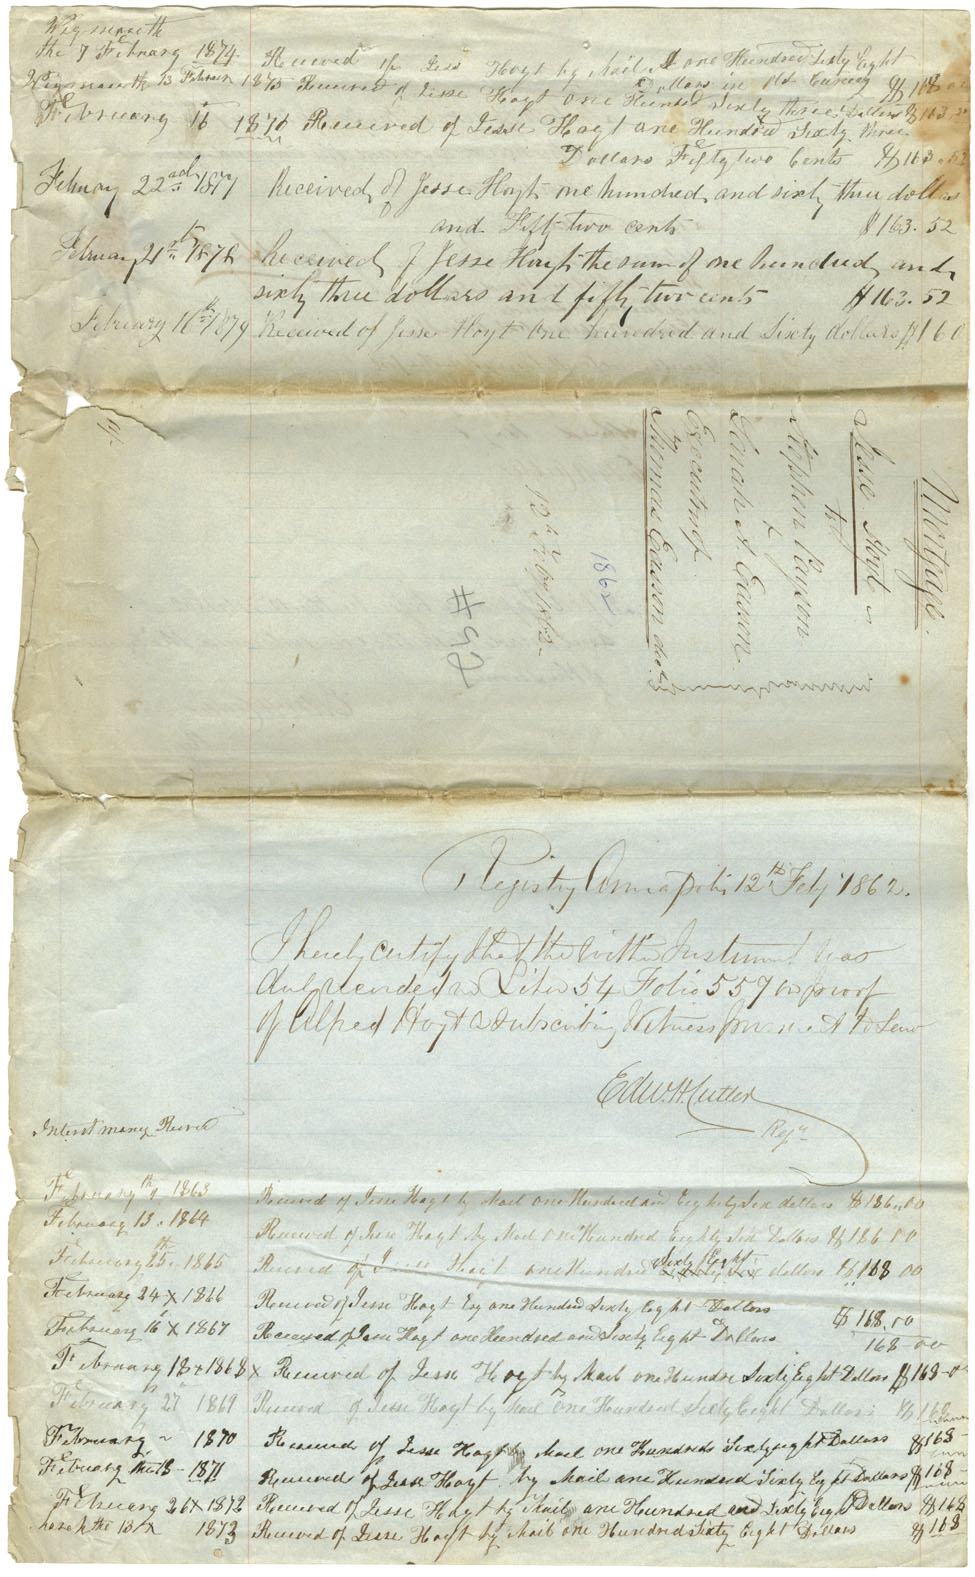 Weymouth
the 7 February 1874 Received of Jess Hoyt by Mail $ one Hundred Sixty Eight
Dollars in Currency $168.00
Weymouth 13 Februy 1875 Received of Jesse Hoyt one Hundred Sixty three Dollars $163
February 16 1876 Received of Jesse Hoyt one Hundred Sixty Three
Dollars Fifty two Cents $163.52
February 22nd 1877 Received of Jesse Hoyt one hundred and sixty three dollars
and Fifty two cents $163.52
February 21st 1878 Received of Jesse Hoyt the sum of one hundred and
sixty three dollars and fifty two cents $163.52
February 10th 1879 Received of Jesse Hoyt one hundred and Sixty dollars $160
Mortgage.
Jesse Hoyt
to
Stephen Payson
&
Sarah A. Easson
Executors of
Thomas Easson
1862
13th Feby 1862
#92
Registry Annapolis 12th Feby 1862.
I hereby certify that the within Instrument was
duly recorded in Liber 54 Folio 557 on proof
of Alfred Hoyt a Subscribing Witness
Edw. H. Cutler
Regr
Interest money Received
February 9th 1863 Received of Jesse Hoyt by Mail one Hundred and Eighty Six dollars $186.00
February 13. 1864 Received of Jesse Hoyt by Mail one Hundred Eighty Six Dollars $186.00
February 25th. 1865 Received of Jesse Hoyt one Hundred Sixty Eight dollars $168 00
February 24 X 1866 Received of Jesse Hoyt Esq one Hundred Sixty Eight Dollars $168.00
February 16 X 1867 Received of Jesse Hoyt one Hundred and Sixty Eight Dollars 168-00
February 18 X 1868 X Received of Jesse Hoyt by Mail one Hundre Sixty Eight Dollars $168-0
February 27 1869 Received of Jesse Hoyt by Mail one Hundred Sixty Eight Dollars $168
February ~ 1870 Received of Jesse Hoyt by Mail one Hundred Sixty eight Dollars $168-
February the 13 - 1871 Received of Jesse Hoyt by Mail one Hundred Sixty Eight Dollars $168-
February 26 X 1872 Received of Jesse Hoyt by Mail one Hundred and Sixty Eight Dollars $168
March the 13 X 1873 Received of Jesse Hoyt by Mail one Hundred Sixty Eight Dollars $168